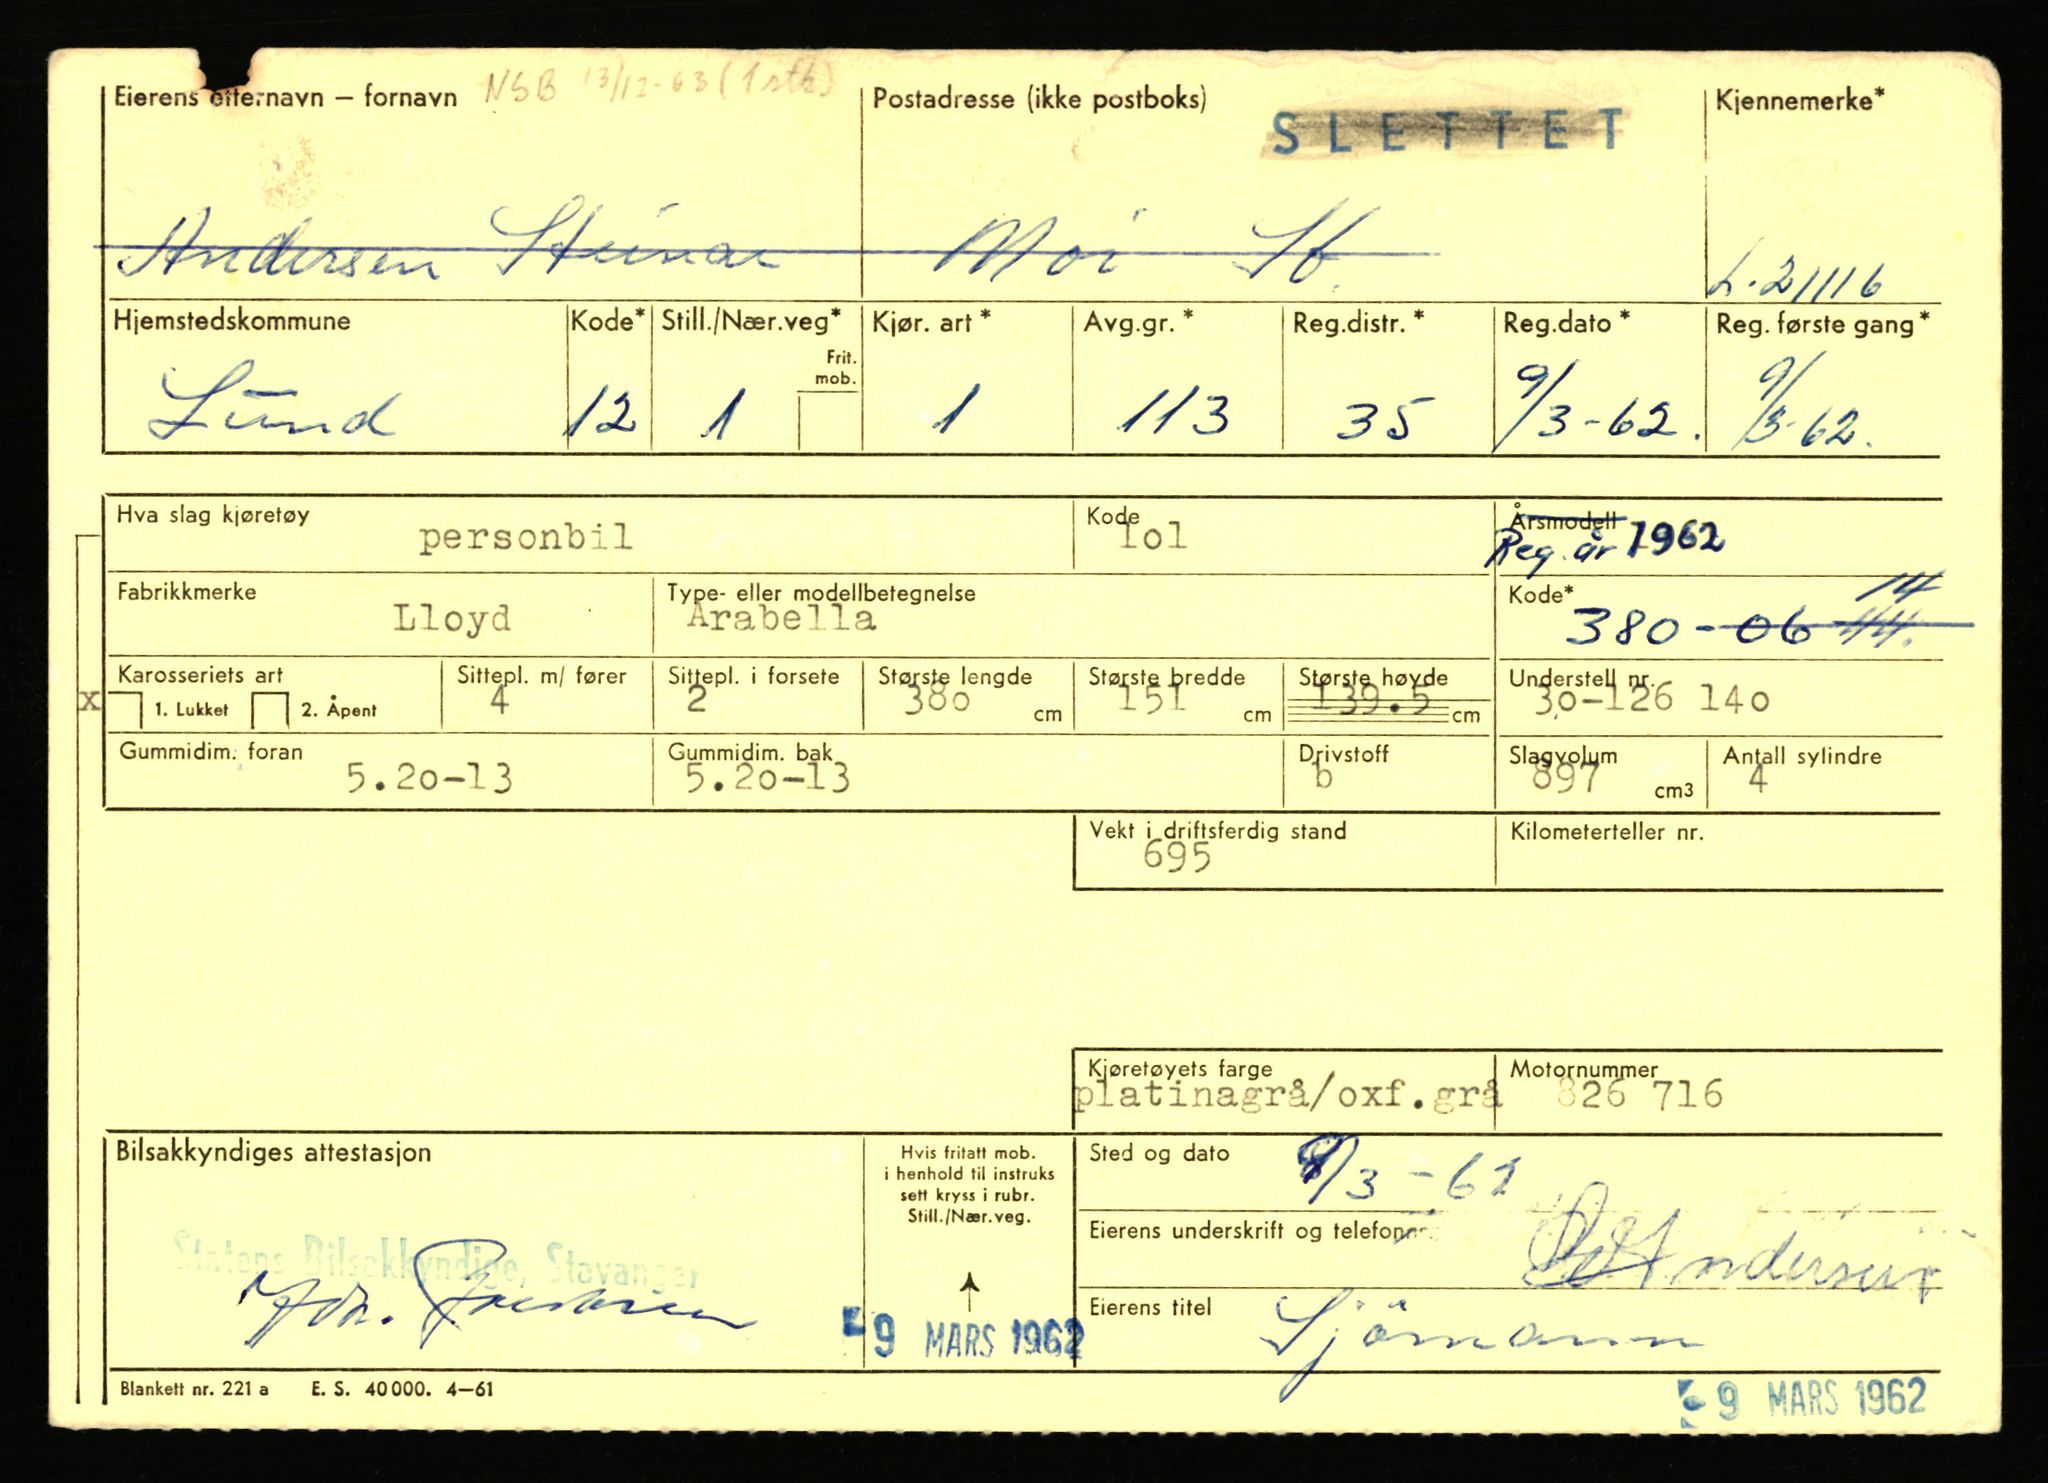 Eierens etternavn – fornavn NSB 13/12-63 (1 stk)
Postadresse (ikke postboks)
SLETTET
Kjennemerke*
Andersen Steinar Moi St. L-21116
Hjemstedskommune Kode* Still./Nær.veg* Kjør. art* Avg.gr.* Reg.distr.* Reg.dato* Reg. første gang*
Frit.
mob.
Lund 12 1 1 113 35 9/3-62. 9/3-62.
Hva slag kjøretøy Kode Årsmodell
personbil 1o1 Reg. år 1962
Fabrikkmerke Type- eller modellbetegnelse Kode* 14
Lloyd Arabella 380-06 44.
Karosseriets art Sittepl. m/ fører Sittepl. i forsete Største lengde Største bredde Største høyde Understell nr.
x 1. Lukket 2. Åpent 4 2 38o cm 151 cm 139.5 cm 3o-126 14o
Gummidim. foran Gummidim. bak Drivstoff Slagvolum Antall sylindre
5.2o-13 5.2o-13 b 897 cm3 4
Vekt i driftsferdig stand Kilometerteller nr.
695
Kjøretøyets farge Motornummer
platinagrå/oxf.grå 826 716
Bilsakkyndiges attestasjon
Hvis fritatt mob.
i henhold til instruks
sett kryss i rubr.
Still./Nær.veg.
Sted og dato 8/3-62
Eierens underskrift og telefonnr. Andersen
Statens Bilsakkyndige, Stavanger
Eierens titel Sjömann
9 MARS 1962
Blankett nr. 221 a E. S. 40 000. 4–61
9 MARS 1962